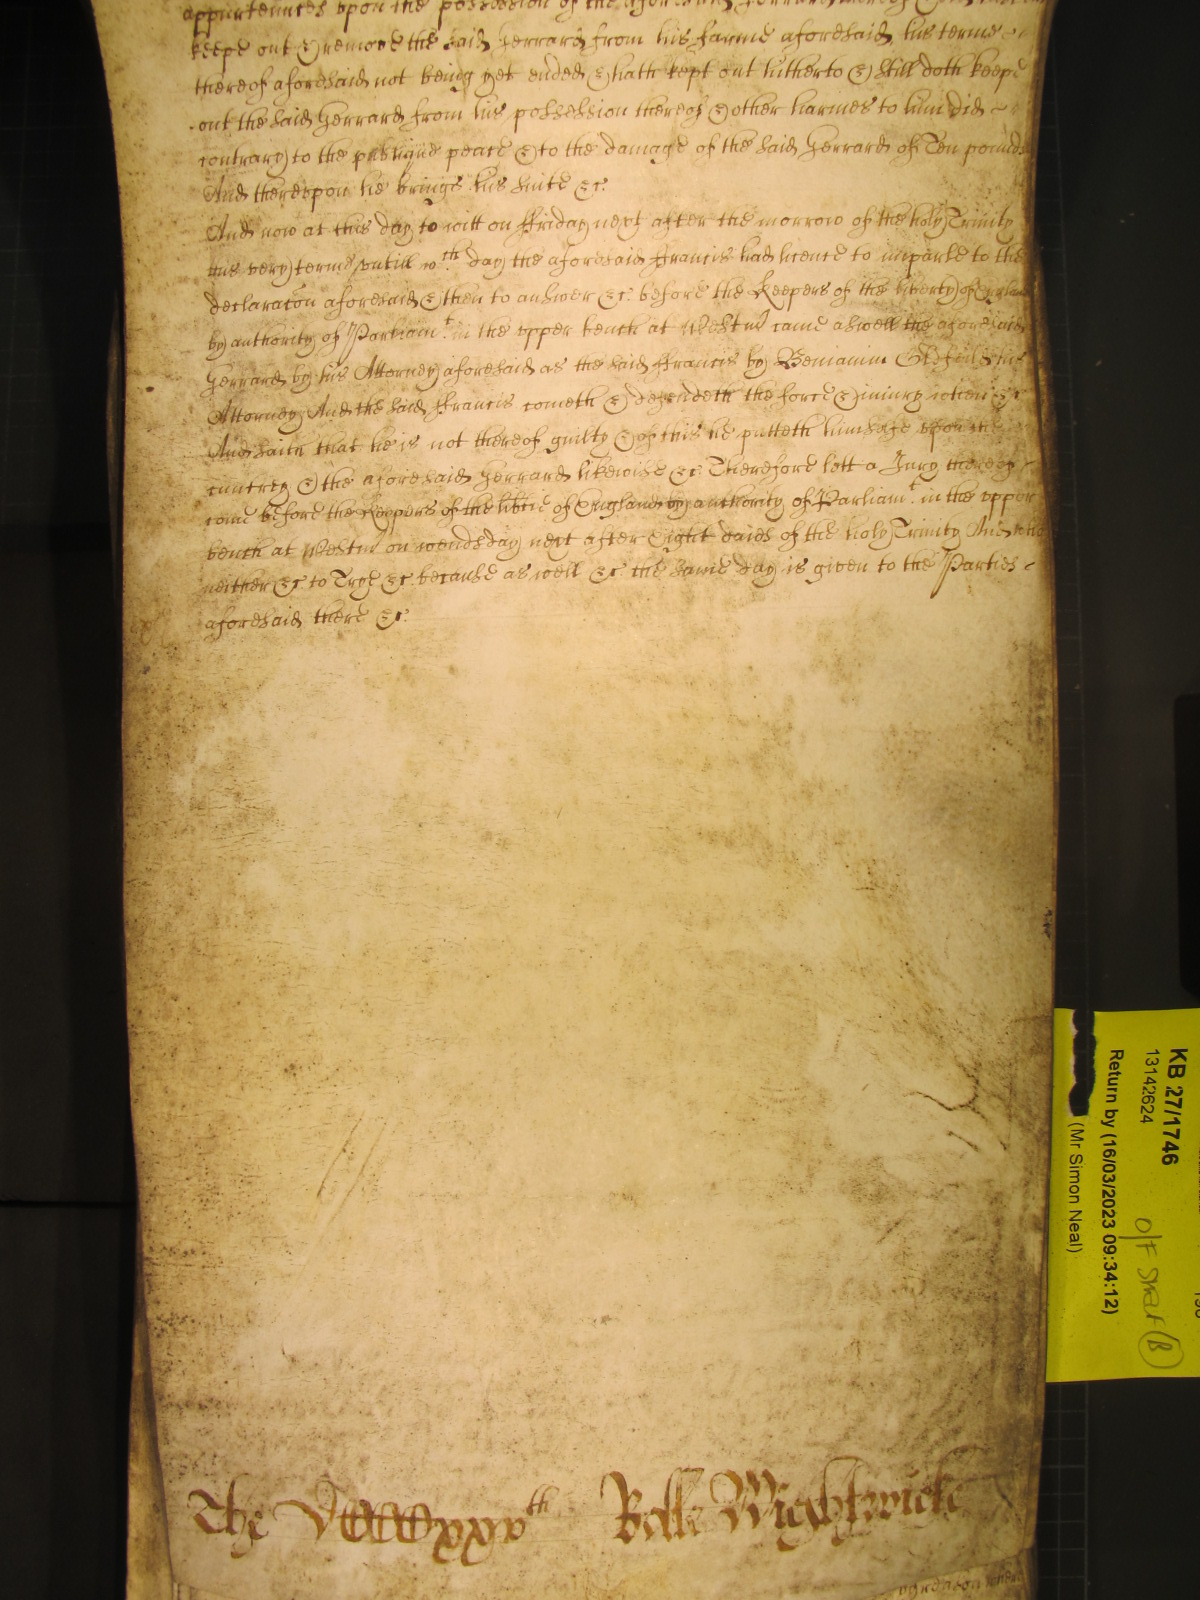 appurtenncẽs upon the possession of the aforesaid Gerrard thereof
keepe out & remove the said Gerrard from his farme aforesaid his terme
thereof aforesaid not being yet ended & hath kept out hitherto & still doth keepe
out the said Gerrard from his possession thereof & other harmes to him did
contrary to the publique peace & to the damage of the said Gerrard of Ten pounds
And thereupon he brings his suite &c.
And now at this day to witt on ffriday next after the morrow of the holy Trinity
this very terme untill wch day the aforesaid ffrancis had licence to imparle to the
declaracõn aforesaid & then to answer &c. before the Keepers of the liberty of England
by authority of Parliamt. in the upper bench at Westm̃ came aswell the aforesaid
Gerrard by his Attorney aforesaid as the said ffrancis by Beniamin his
Attorney And the said ffrancis cometh & defendeth the force & iniury when &c
And saith that he is not thereof guilty & of this he putteth himselfe upon the
cuntrey & the aforesaid Gerrard likewise &c. Therefore lett a Jury thereof
come before the Keepers of the libtie of England by authority of Parliamt. in the upper
bench at Westm̃ on wendsday next after Eight daies of the holy Trinity And who
neither &c. to Trye &c. because as well &c. the same day is given to the Parties
aforesaid there &c.
The xxxvth Rolle Wightwicke
KB 27/1746
13142624
O/F Sheet (B)
Return by (16/03/2023 09:34:12)
(Mr Simon Neal)